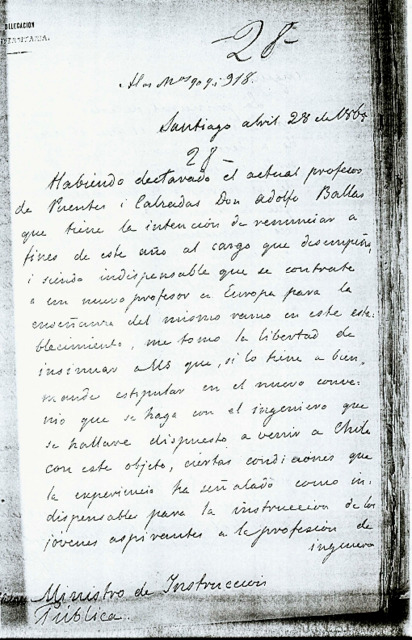 DELEGACION
UNIVERSITARIA.
28-
A los Nos 909 i 918.
Santiago abril 28 de 186
28-
Habiendo declarado el actual profesor
de Puentes i Calzadas Don Adolfo Ballas
que tiene la intención de renunciar a
fines de este año al cargo que desempeña,
i siendo indispensable que se contrate
a un nuevo profesor en Europa para la
enseñanza del mismo ramo en este esta-
blecimiento, me tomo la libertad de
insinuar a US que, si lo tiene a bien,
mande estipular en el nuevo conve-
nio que se haga con el ingeniero que
se hallare dispuesto a venir a Chile
con este objeto, ciertas condiciones que
la experiencia ha señalado como in-
dispensables para la instrucción de los
jóvenes aspirantes a la profesión de
ingeniero
Ministro de Instrucción
Pública